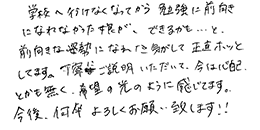 学校へ行けなくなってから 勉強に前向き
になれなかった娘が、できるかも…と、
前向きな姿勢になれた気がして 正直ホッと
してます。丁寧にご説明いただいて、今は心配
とかも無く、希望の光のように感じてます。
今後、何卒 よろしくお願い致します!!